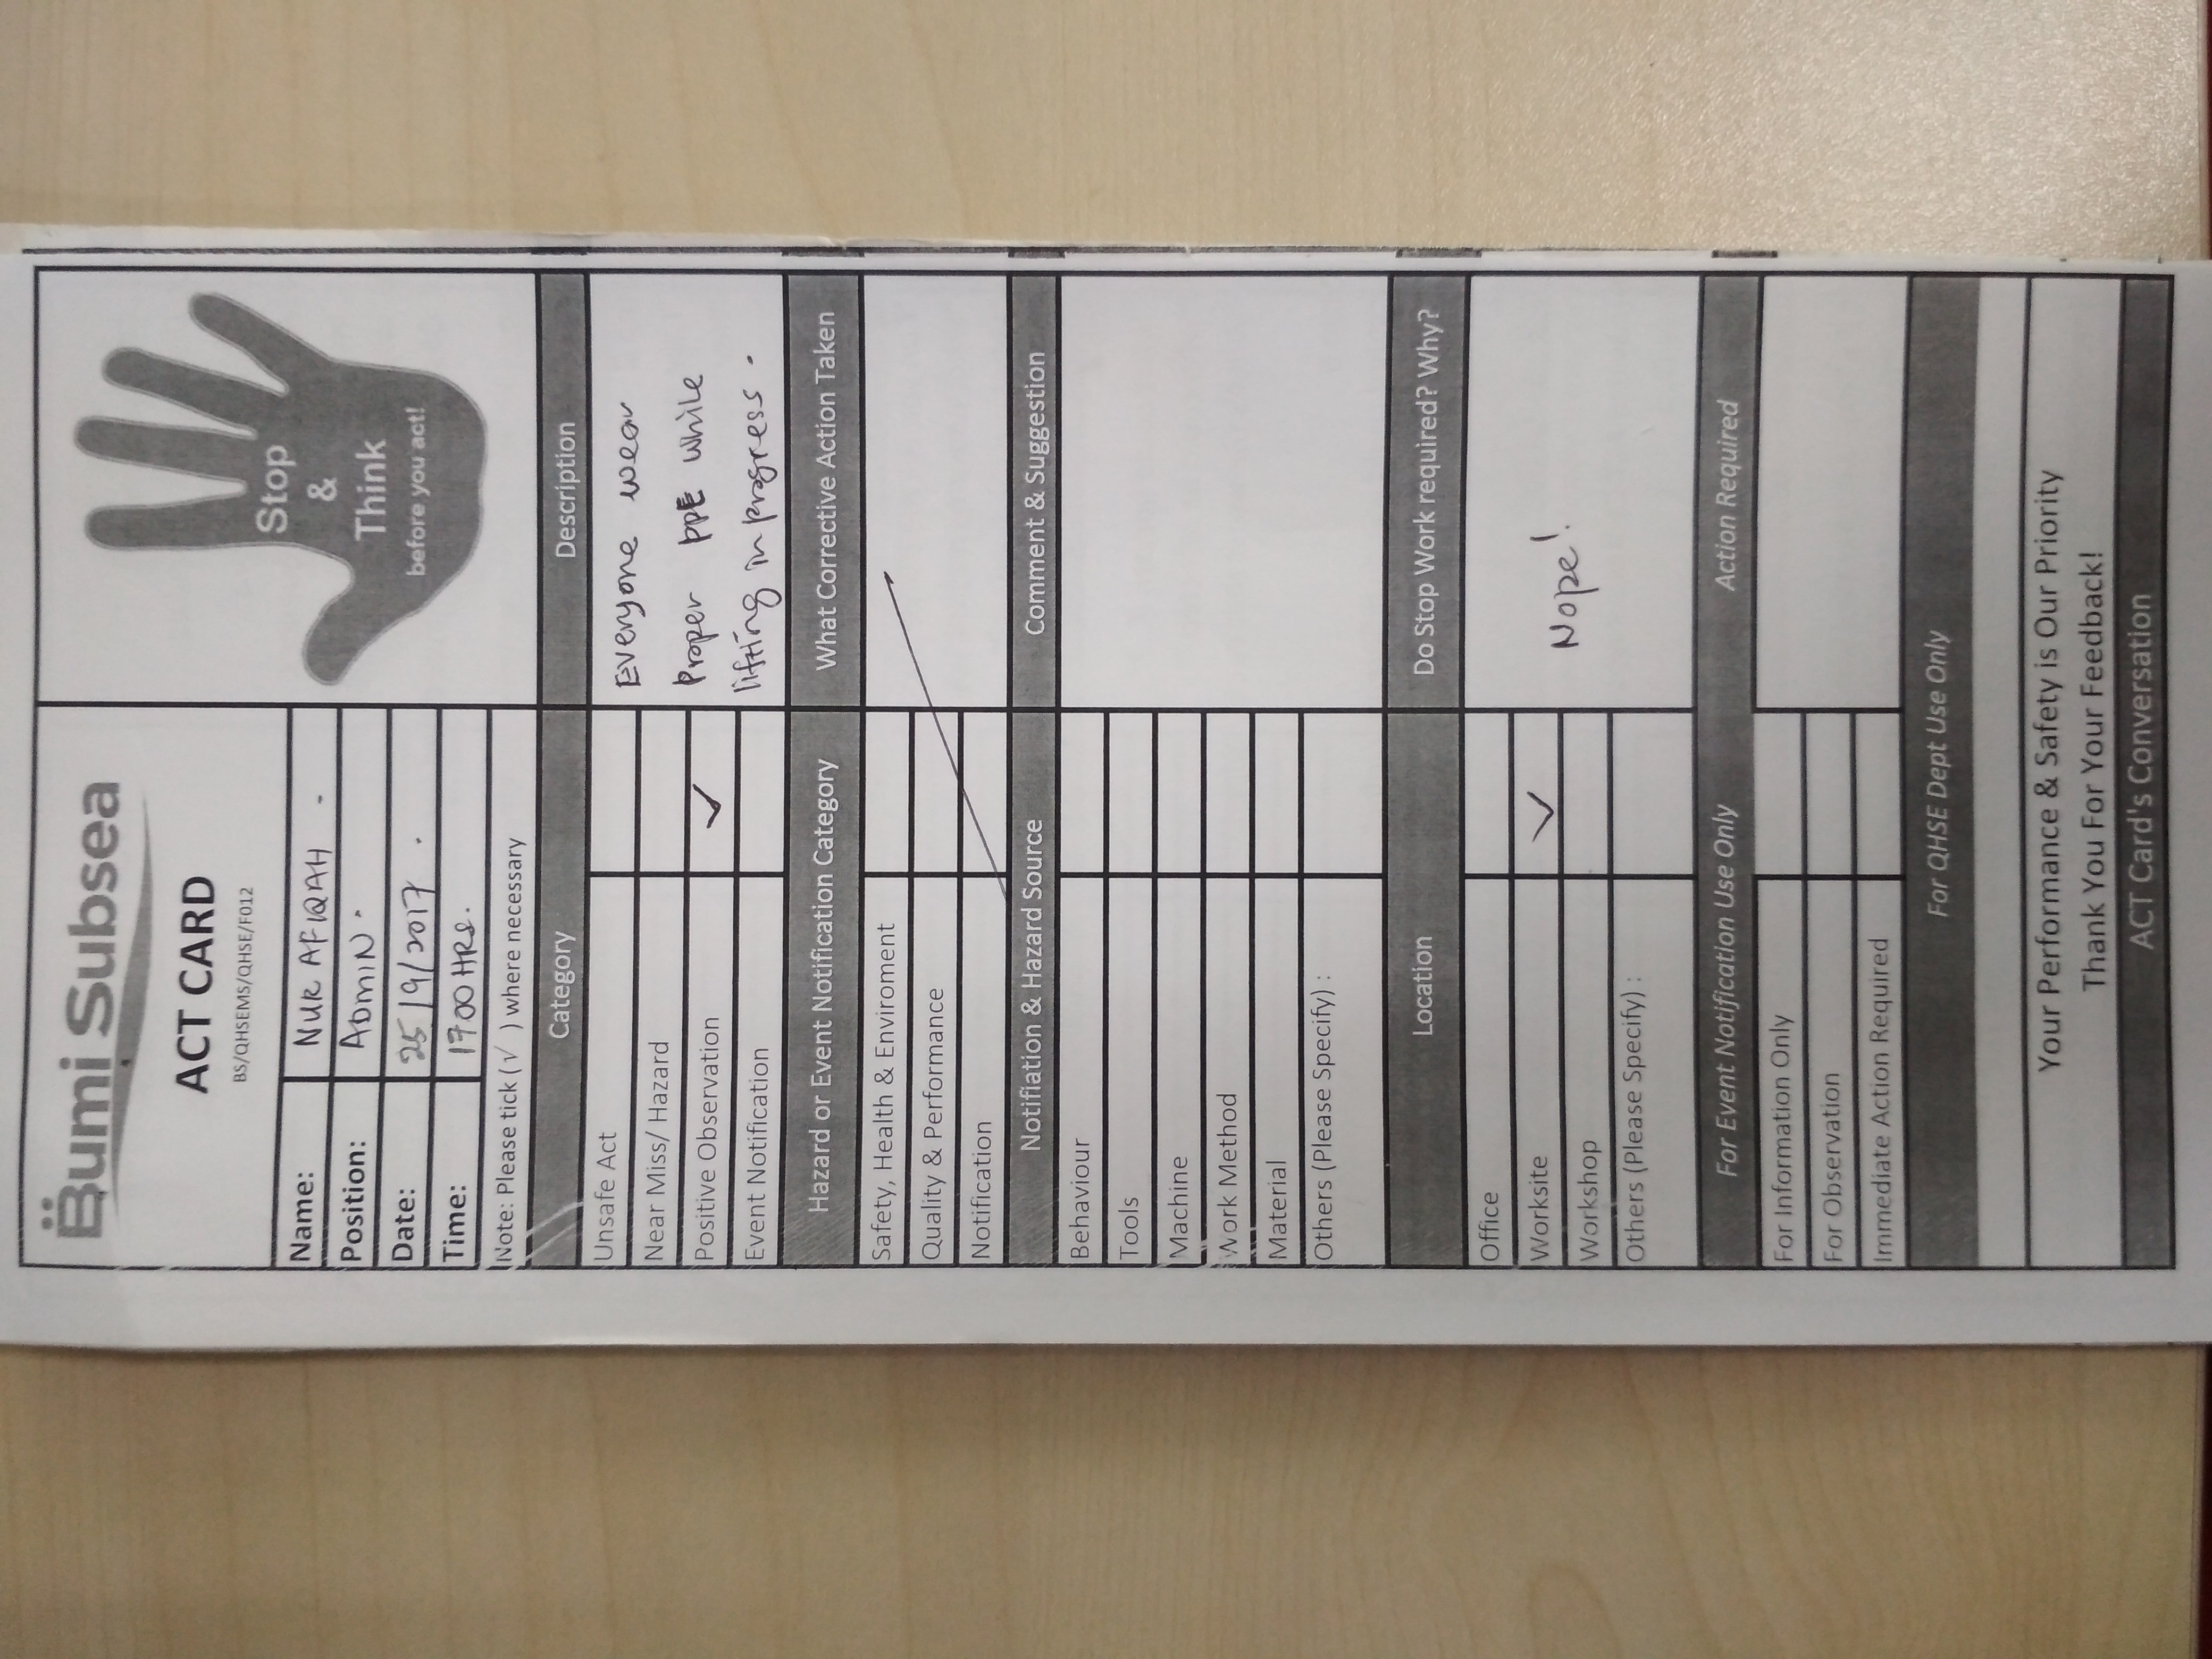 Bumi Subsea
ACT CARD
BS/QHSEMS/QHSE/F012
Stop
&
Think
before you act!
Name: NUR AFIQAH .
Position: ADMIN .
Date: 25/9/2017 .
Time: 1700 HRS.
Note: Please tick ( √ ) where necessary
Category Description
Unsafe Act
Near Miss/ Hazard
Positive Observation ✓
Event Notification
Everyone wear
Proper PPE while
lifting in progress .
Hazard or Event Notification Category What Corrective Action Taken
Safety, Health & Enviroment
Quality & Performance
Notification
Notifiation & Hazard Source Comment & Suggestion
Behaviour
Tools
Machine
Work Method
Material
Others (Please Specify) :
Location Do Stop Work required? Why?
Office
Worksite ✓
Workshop
Others (Please Specify) :
Nope!
For Event Notification Use Only Action Required
For Information Only
For Observation
Immediate Action Required
For QHSE Dept Use Only
Your Performance & Safety is Our Priority
Thank You For Your Feedback!
ACT Card's Conversation